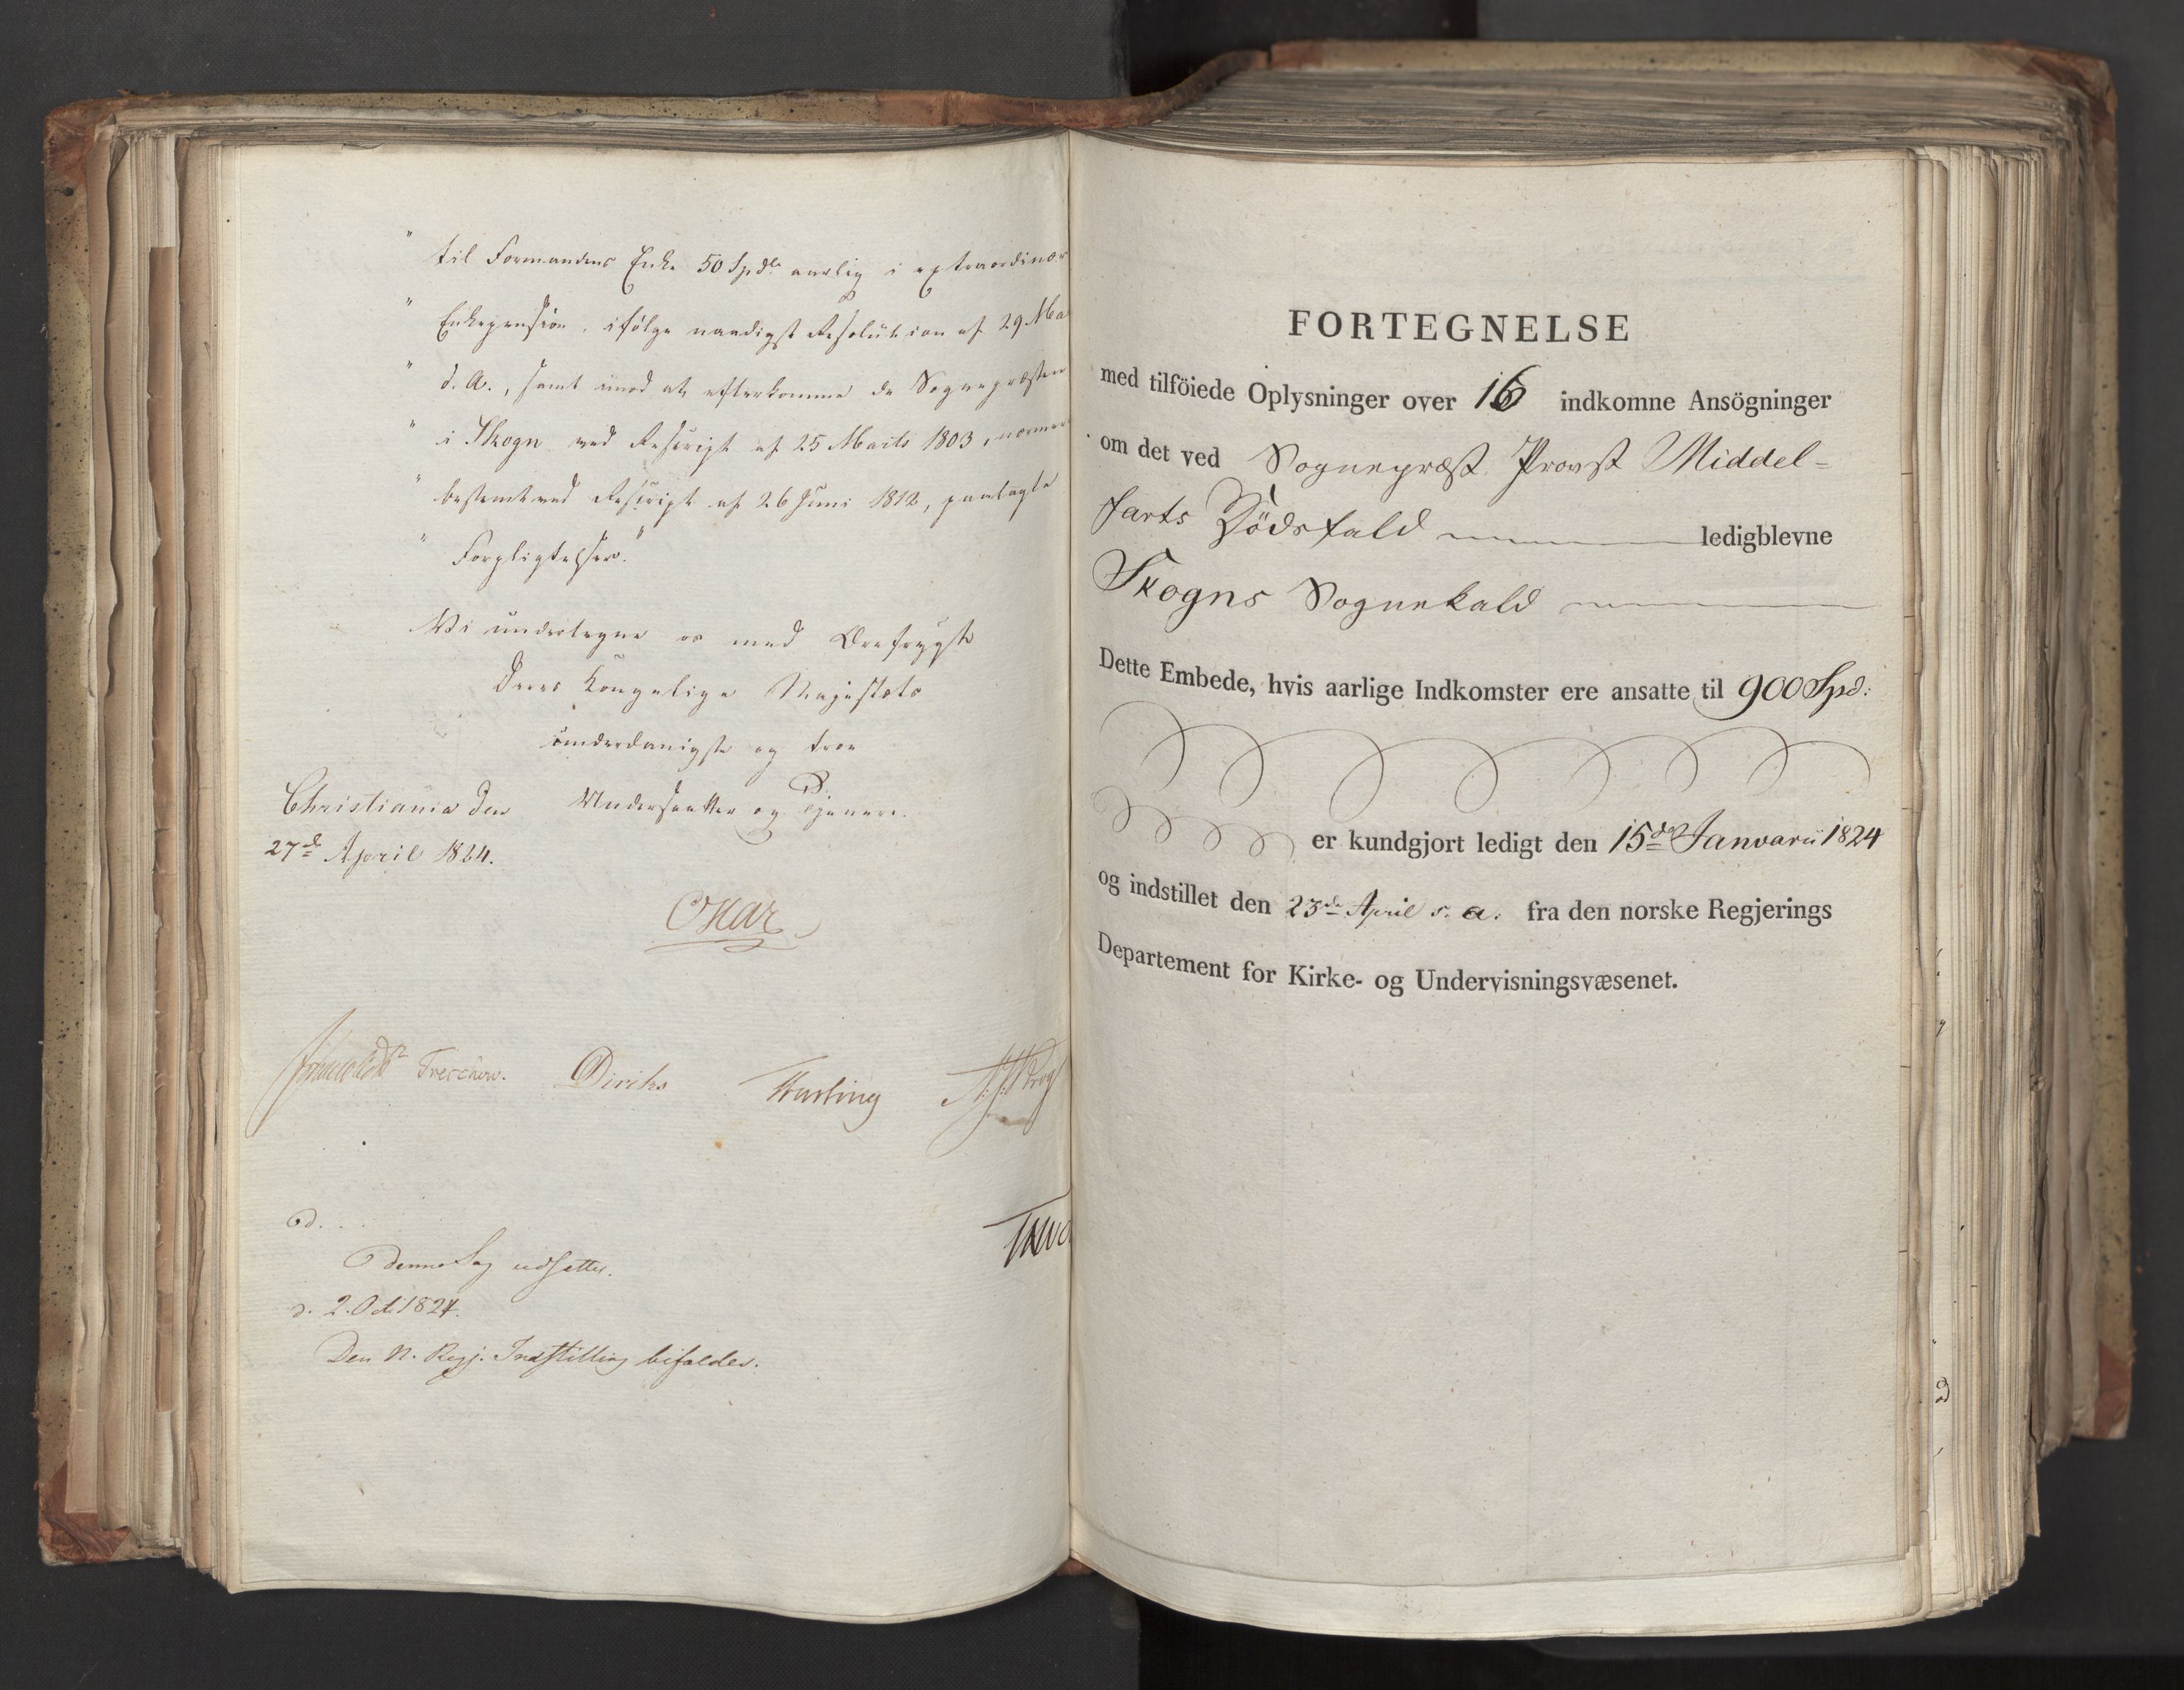 " til Formandens Enke 50 Spdlr aarlig i extraordinær
" Enkepension, ifølge naadigst Resolution af 29 Ma
" d. A., samt imod at efterkomme de Sognepræsten
" i Skogn ved Rescript af 25 Marts 1803, nærmer
" bestemt ved Rescript af 26 Juni 1812, paalagte
" Forpligtelser."
Vi undertegne os med Ærefrygt
Deres Kongelige Majestæts
underdanigste og troe
Christiania den Undersaatter og Tjenere.
27de April 1824.
Oscar
Treschow. Diriks Fasting
Denne Sag udsættes.
d. 2. Oct. 1824.
Den N. Regj. Indstilling bifaldes.
FORTEGNELSE
med tilföiede Oplysninger over 16 indkomne Ansögninger
om det ved Sognepræst Provst Middel-
farts Dödsfald ledigblevne
Skogns Sognekald
Dette Embede, hvis aarlige Indkomster ere ansatte til 900 Spd:
er kundgjort ledigt den 15de Januarii 1824
og indstillet den 23de April s. a. fra den norske Regjerings
Departement for Kirke- og Undervisningsvæsenet.